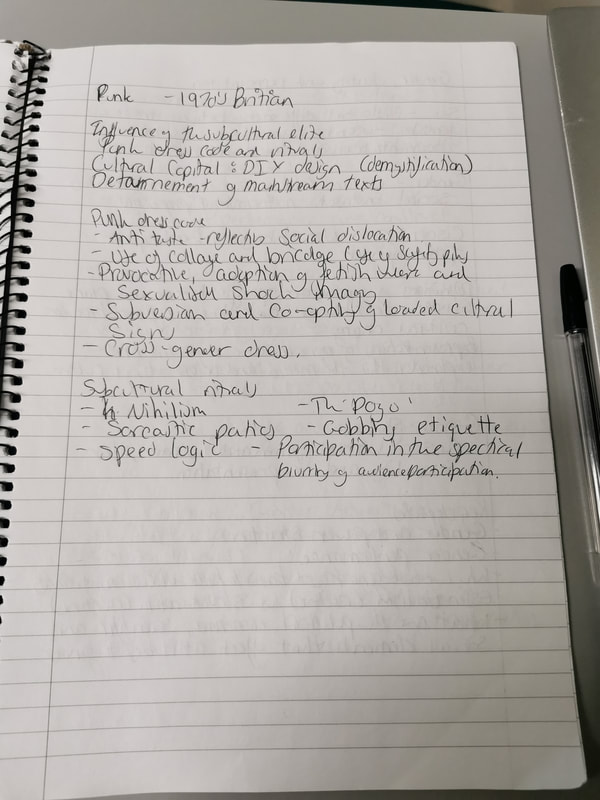 Punk - 1970's Britian
Influence of the subcultural elite
Punk dress code and rituals
Cultural Capital : DIY design (demystification)
Detournement of mainstream texts
Punk dress code
- Anti taste - reflecting Social dislocation
- Use of collage and bricolage (use of safety pins
- Provocative, adoption of fetish wear and
Sexualised Shock Imagery
- Subversion and Co-opting of loaded cultural
Sign
- Cross-gender dress.
Subcultural rituals
- Nihilism - The 'Pogo'
- Sarcastic - Gobbing etiquette
- Speed logic - Participation in the spectical
blurring of audience participation.